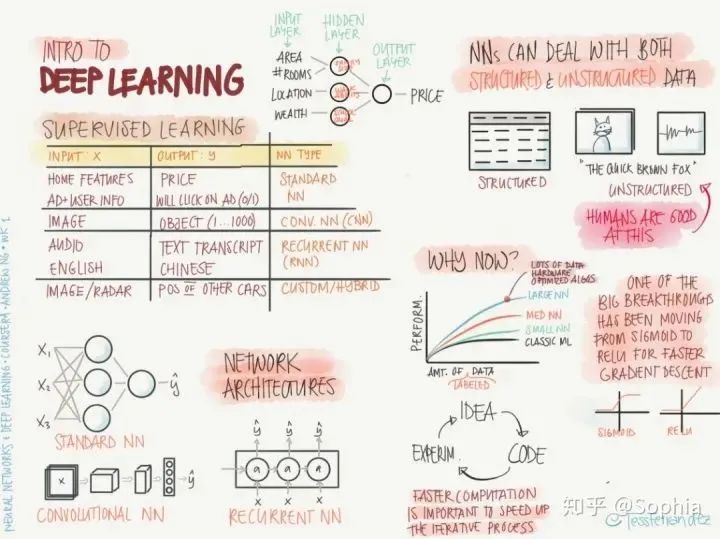 INTRO TO
DEEP LEARNING
INPUT LAYER
HIDDEN LAYER
OUTPUT LAYER
AREA
# ROOMS
LOCATION
WEALTH
PRICE
SUPERVISED LEARNING
INPUT: X OUTPUT: y NN TYPE
HOME FEATURES PRICE STANDARD
AD+USER INFO WILL CLICK ON AD (0/1) NN
IMAGE OBJECT (1...1000) CONV. NN (CNN)
AUDIO TEXT TRANSCRIPT RECURRENT NN
ENGLISH CHINESE (RNN)
IMAGE/RADAR POS OF OTHER CARS CUSTOM/HYBRID
NNs CAN DEAL WITH BOTH
STRUCTURED & UNSTRUCTURED DATA
STRUCTURED
"THE QUICK BROWN FOX"
UNSTRUCTURED
HUMANS ARE GOOD
AT THIS
WHY NOW?
LOTS OF DATA
HARDWARE
OPTIMIZED ALGOS
LARGE NN
MED NN
SMALL NN
CLASSIC ML
PERFORM.
AMT. OF DATA
LABELED
ONE OF THE
BIG BREAKTHROUGHS
HAS BEEN MOVING
FROM SIGMOID TO
RELU FOR FASTER
GRADIENT DESCENT
SIGMOID
RELU
IDEA
CODE
EXPERIM.
FASTER COMPUTATION
IS IMPORTANT TO SPEED UP
THE ITERATIVE PROCESS
NETWORK
ARCHITECTURES
X1
X2
X3
ŷ
STANDARD NN
X
ŷ
CONVOLUTIONAL NN
ŷ ŷ ŷ
a a a
x x x
RECURRENT NN
NEURAL NETWORKS & DEEP LEARNING · COURSERA · ANDREW NG · WK 1
知乎 @Sophia